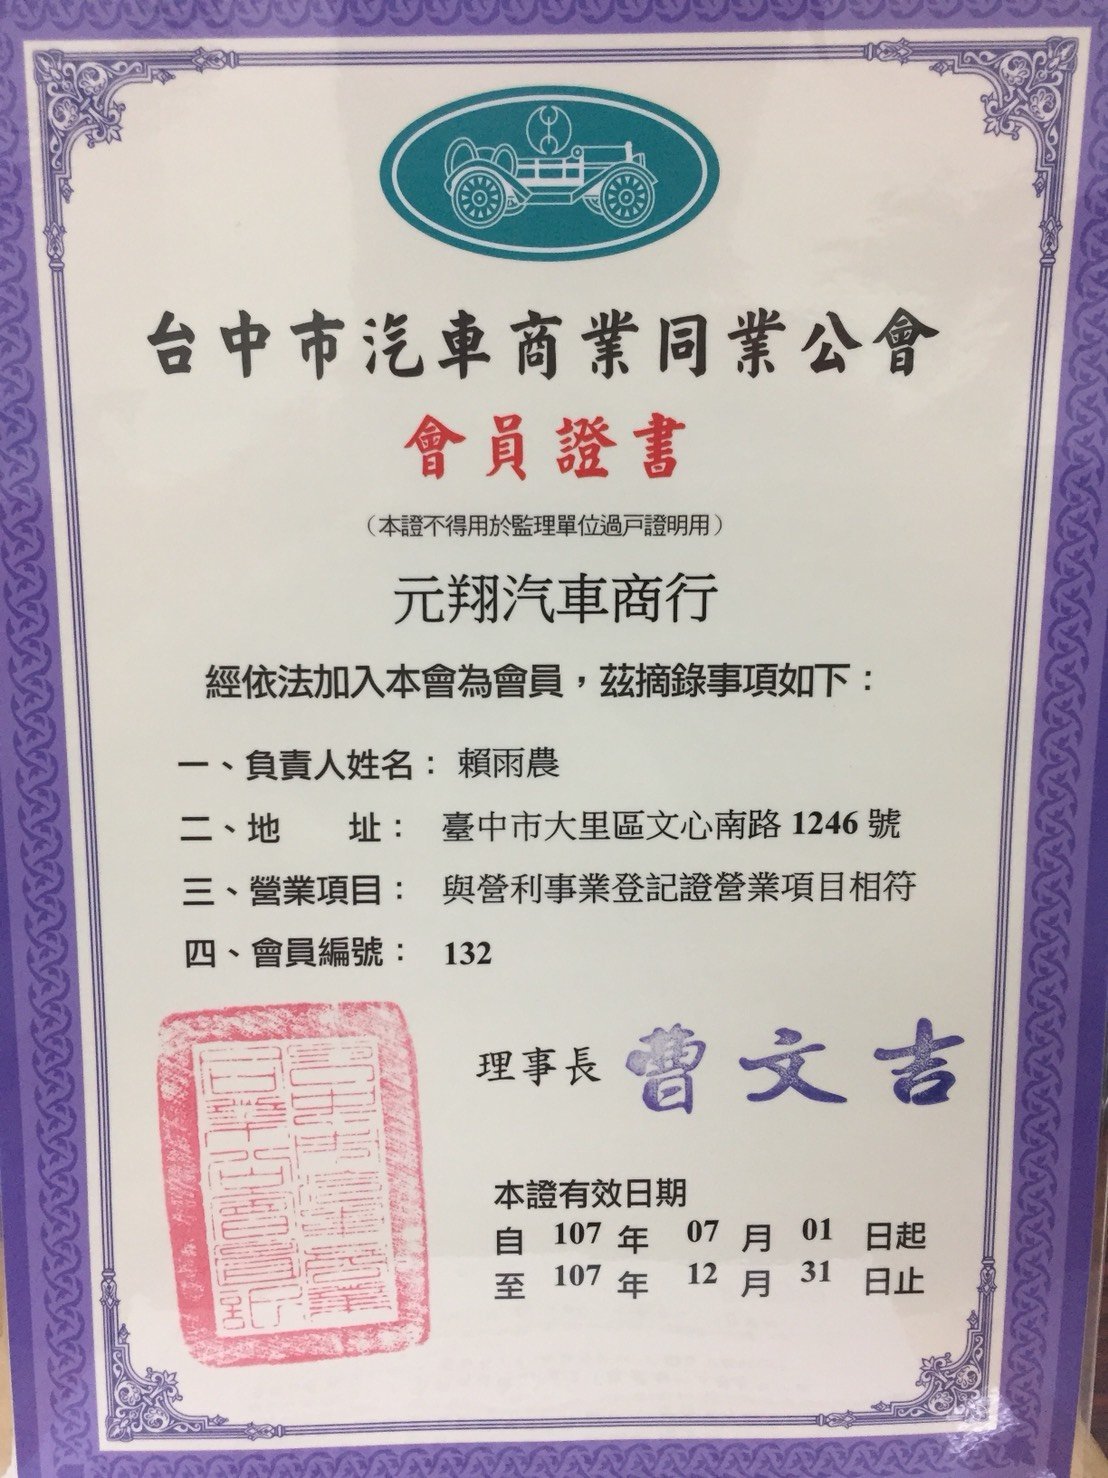 台中市汽車商業同業公會
會員證書
（本證不得用於監理單位過戶證明用）
元翔汽車商行
經依法加入本會為會員，茲摘錄事項如下：
一、負責人姓名：賴雨農
二、地　　址：臺中市大里區文心南路 1246 號
三、營業項目：與營利事業登記證營業項目相符
四、會員編號：132
理事長 曹文吉
本證有效日期
自 107 年 07 月 01 日起
至 107 年 12 月 31 日止